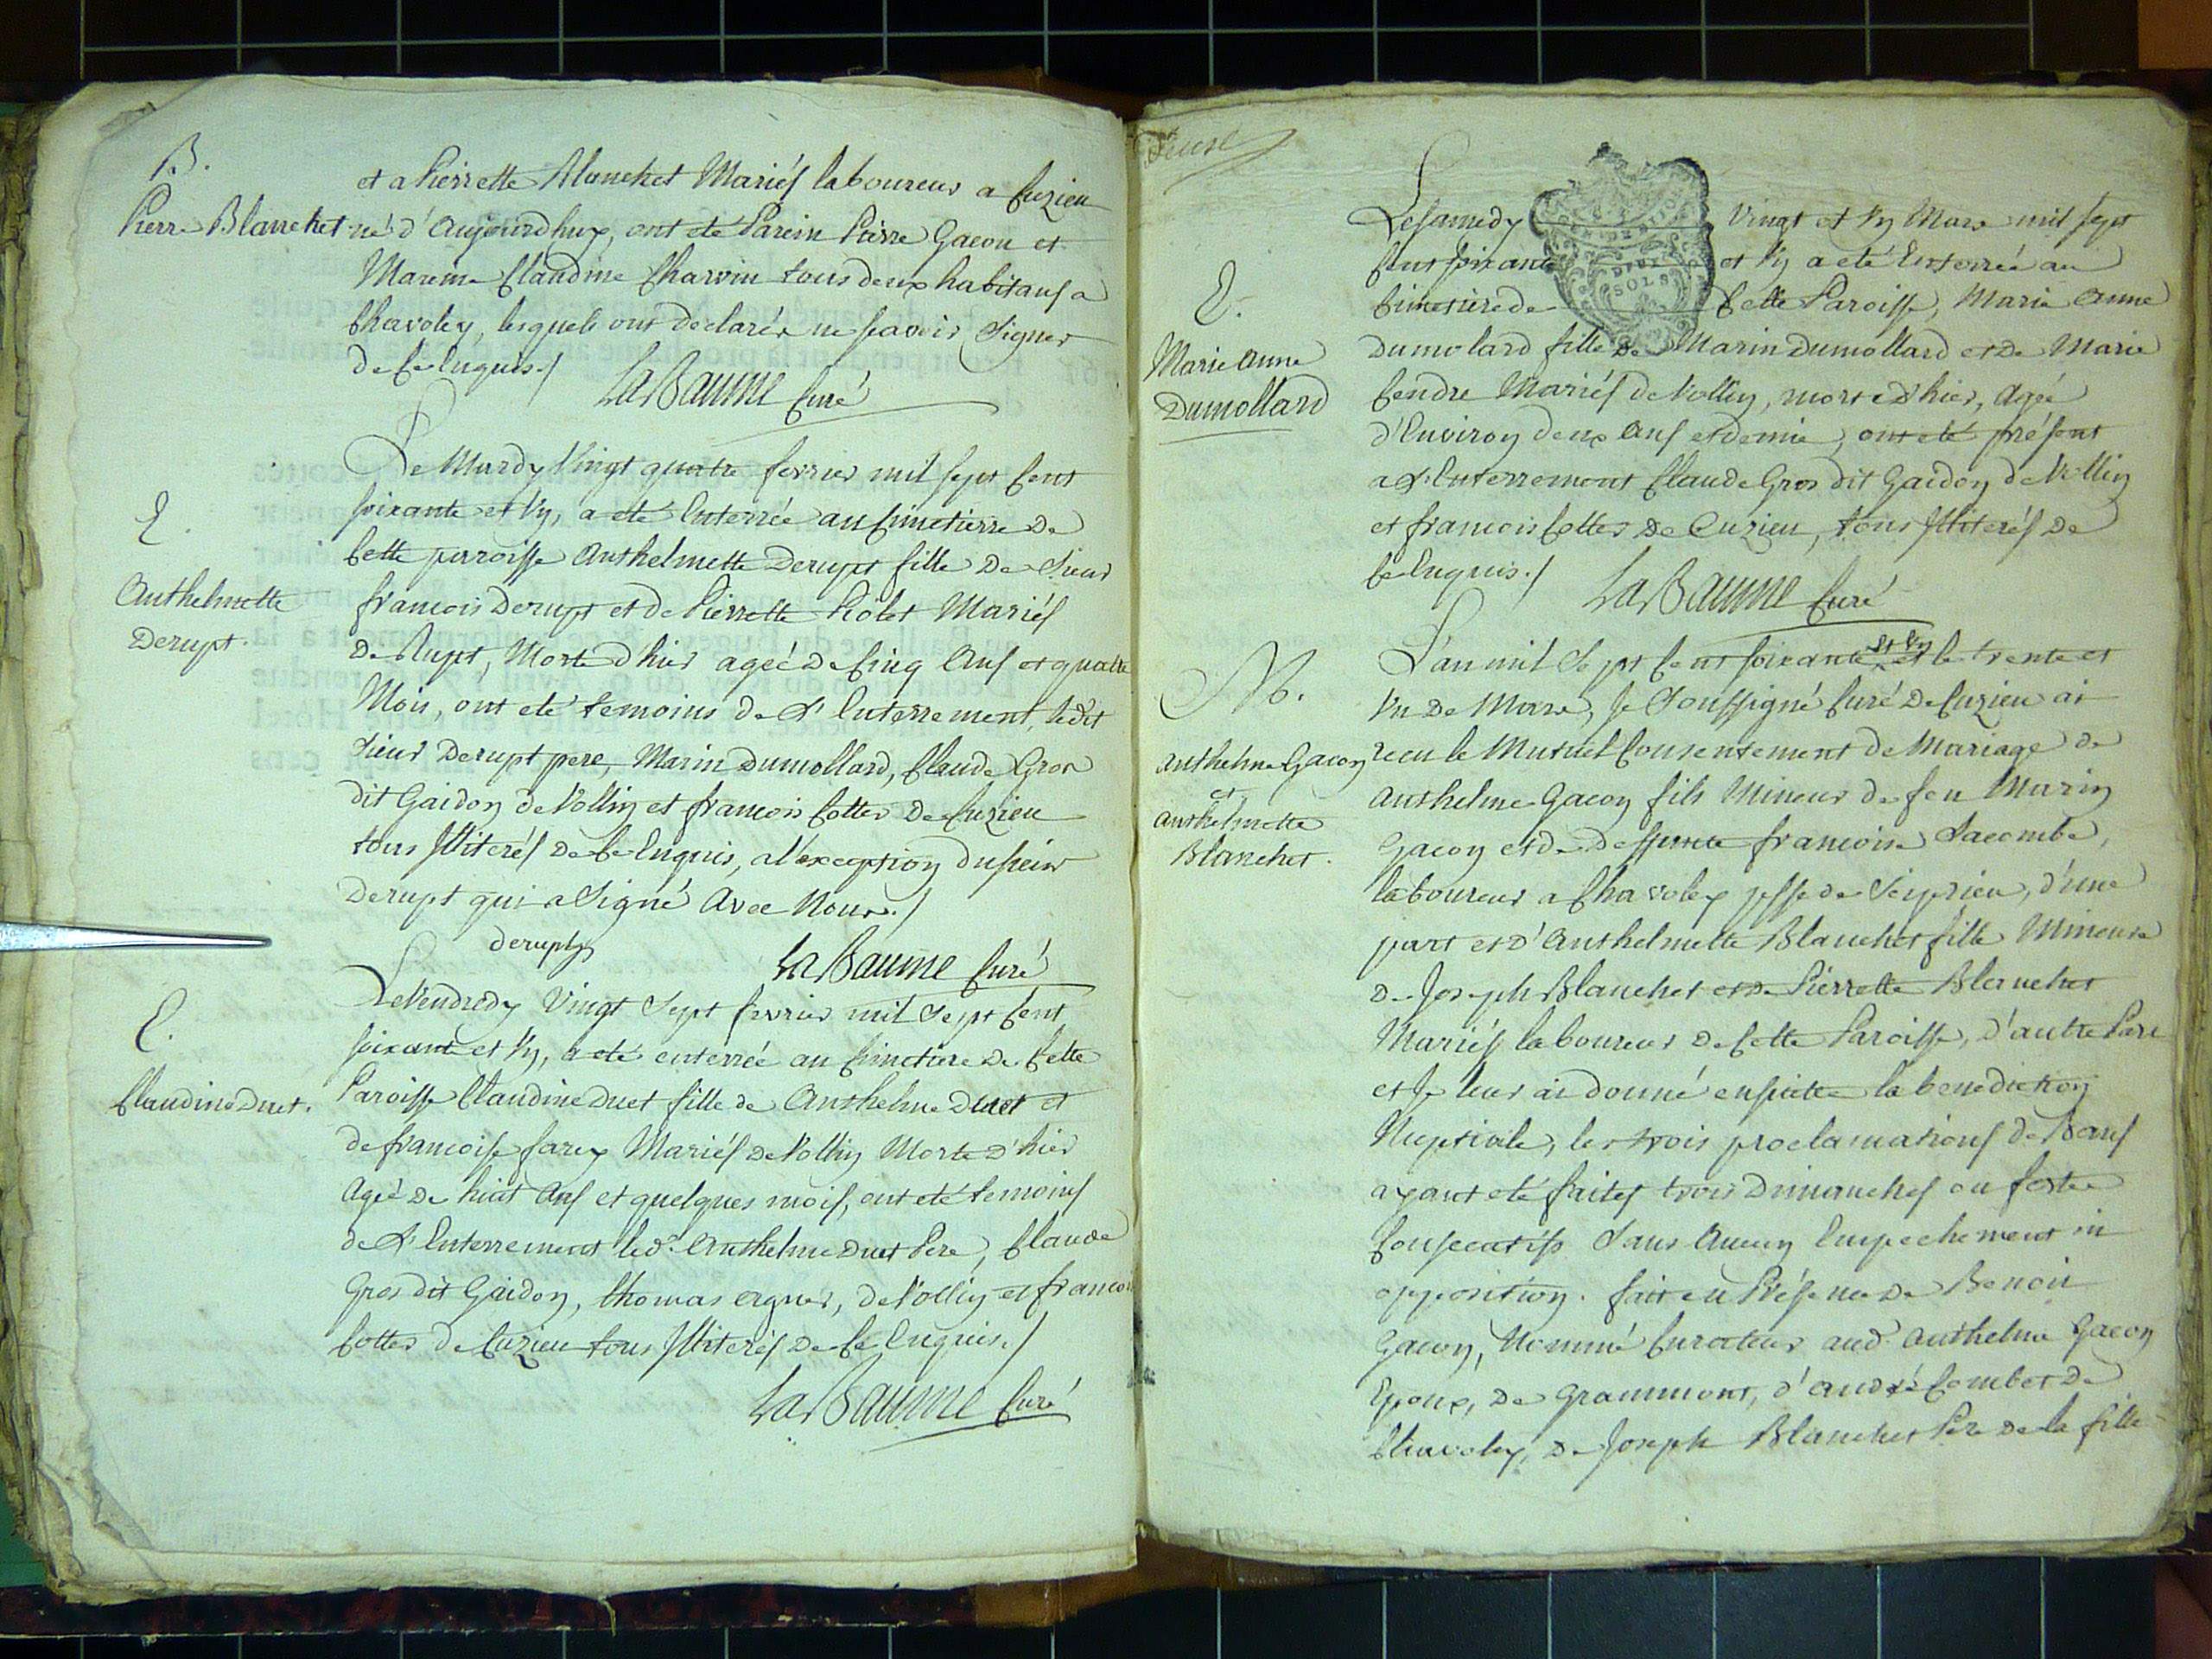 B.
Pierre Blanchet
et a Pierrette Blanchet Mariés laboureurs a Cuzieu
né d'Aujourdhuy, ont eté Parein Pierre Gacon et
Mareine Claudine Charvin tous deux habitans a
Chavoley, lesquels ont declarés ne scavoir signer
de ce Enquis./
LaBaume Curé
E.
Anthelmette
Derupt.
Le Mardy Vingt quatre fevrier mil sept Cent
soixante et Un, a eté Enterrée au Cimetierre de
Cette parroisse Anthelmette Derupt fille de Sieur
francois Derupt et de Pierrette Rolet Mariés
de Rupt, Morte d'hier agéé de Cinq Ans et quatre
Mois, ont eté temoins de L'Enterrement, ledit
Sieur Derupt pere, Marin Dumollard, Claude Gros
dit Gaidon de Vollin et francois Cotter de Cuzieu
tous Illiterés de Ce Enquis, a l'exception du sieur
Derupt qui a Signé Avec Nous./
derupt
LaBaume Curé
E.
Claudine Duet.
Le Vendredy Vingt Sept fevrier mil Sept Cent
soixante et Un, a eté enterrée au Cimetiere de Cette
Paroisse Claudine Duet fille de Anthelme Duet et
de francoise farey Mariés de Vollin Morte d'hier
Agéé de huit Ans et quelques mois, ont eté temoins
de L'Enterrement led. Anthelme Duet Pere, Claude
Gros dit Gaidon, thomas, de Vollin et francois
Cotter de Cuzieu tous Illiterés de Ce Enquis./
LaBaume Curé
DEUX
SOLS
E.
Marie Anne
Dumollard
Le Samedy Vingt et Un Mars mil sept
Cent soixante et Un a eté Enterrée au
Cimetiere de Cette Paroisse, Marie Anne
Dumolard fille de Marin Dumollard et de Marie
Cendre Mariés de Vollin, morte d'hier, Agéé
d'Environ deux Ans et demie, ont eté présent
a L'Enterrement Claude Gros dit Gaidon de Vollin
et francois Cotter de Cuzieu, tous Illiterés de
Ce Enquis./
LaBaume Curé
M.
Anthelme Gacon
et
Anthelmette
Blanchet.
L'an mil Sept Cent soixante et Un et le trente et
Un de Mars, Je Soussigné Curé de Cuzieu ai
recu le Mutuel Consentement de Mariage de
Anthelme Gacon fils Mineur de feu Marin
Gacon et de deffunte francoise Lacombe,
laboureur a Chavoley psse de Ceyzrieu, d'une
part et d'Anthelmette Blanchet fille Mineure
de Joseph Blanchet et de Pierrette Blanchet
Mariés laboureur de Cette Paroisse, d'autre Part
et Je leur ai donné ensuitte la benediction
Nuptiale, les trois proclamations de Bans
ayant eté faites trois Dimanches ou festes
Consecutifs Sans Aucun Empechement ni
opposition. fait en Présence de Benoit
Gacon, Nommé Curateur aud. Anthelme Gacon
Epoux, de Grammont, d'André Combet de
Chavoley, de Joseph Blanchet Pere de la fille